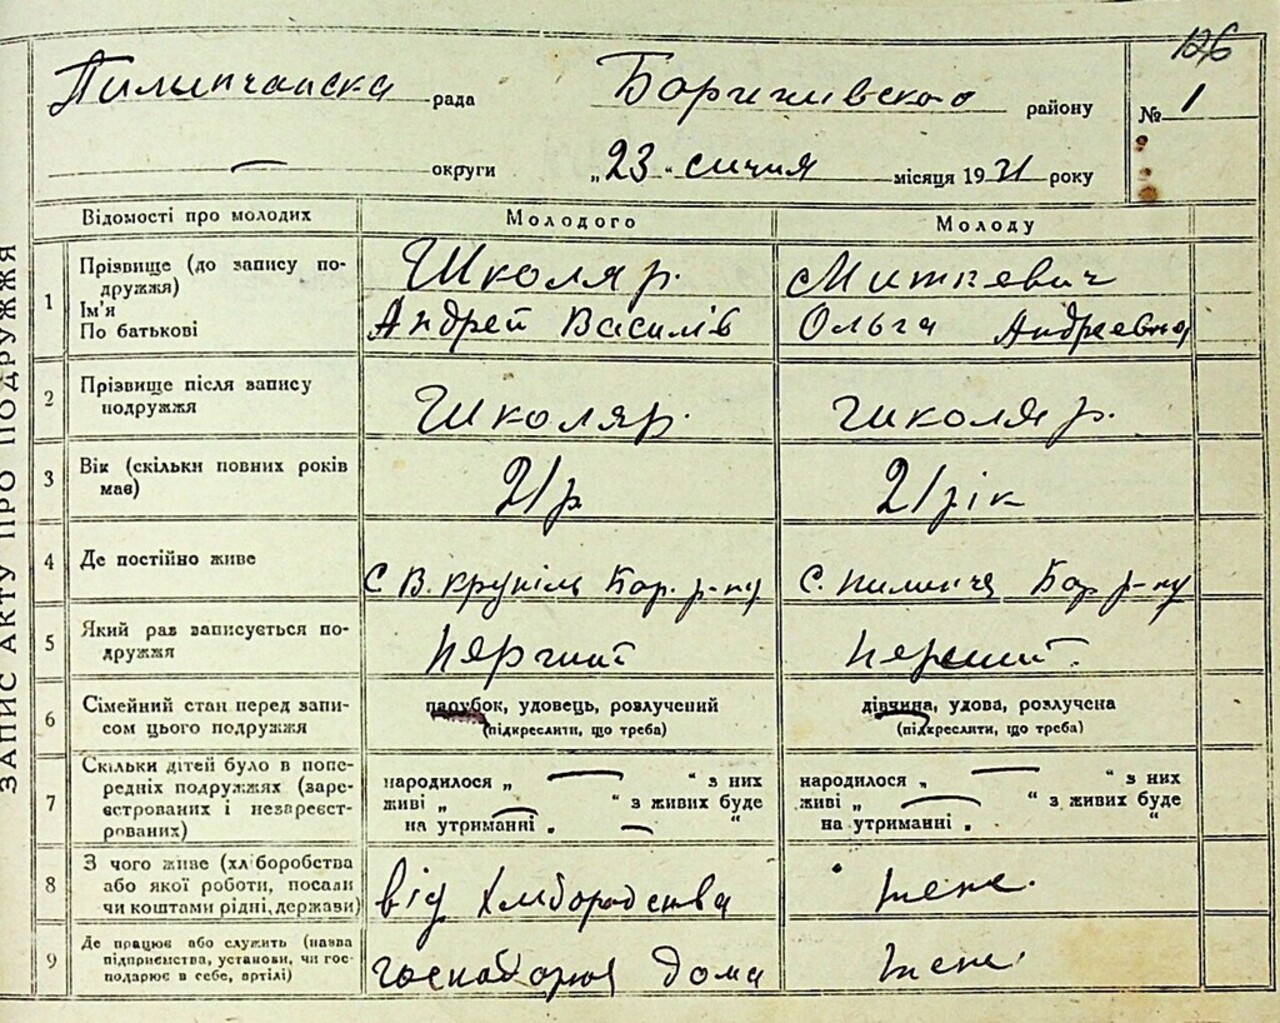 126
Пилипчанска рада Боришивского району № 1
округи „23“ сичня місяця 1931 року
ЗАПИС АКТУ ПРО ПОДРУЖЖЯ
Відомості про молодих Молодого Молоду
1 Прізвище (до запису по- Школяр. Миткевич
дружжя)
Ім'я
По батькові Андрей Василів Ольга Андреевна
2 Прізвище після запису Школяр. Школяр.
подружжя
3 Вік (скільки повних років 21 р 21 рік
має)
4 Де постійно живе С. В. Крупіль Бор. р-ну С. Пилипча Бор р-ну
5 Який раз записується по- первий первий.
дружжя
6 Сімейний стан перед запи- парубок, удовець, розлучений дівчина, удова, розлучена
сом цього подружжя (підкреслити, що треба) (підкреслити, що треба)
7 Скільки дітей було в попе-
редніх подружжях (заре- народилося „ — “ з них народилося „ — “ з них
єстрованих і незареєст- живі „ — “ з живих буде живі „ — “ з живих буде
рованих) на утриманні „ — “ на утриманні „ “
8 З чого живе (хліборобства
або якої роботи, посади
чи коштами рідні, держави) від Хлиборобства
9 Де працює або служить (назва
підприємства, установи, чи гос-
подарює в себе, артілі) дома